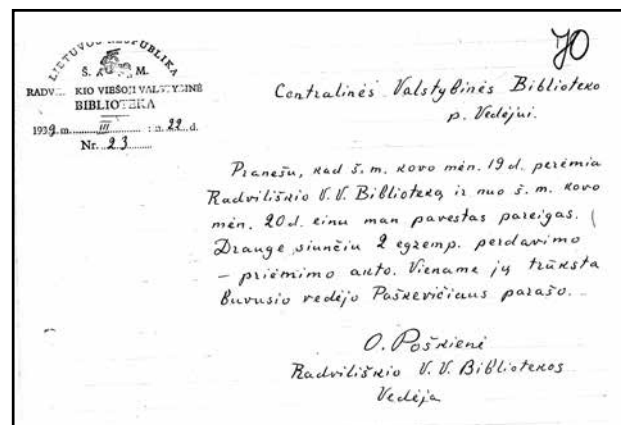 70
LIETUVOS RESPUBLIKA
Š. M.
KIO VIEŠOJI VALSTYBINĖ
BIBLIOTEKA
1939 m. III 22 d.
Nr. 23
Centralinės Valstybinės Biblioteko
p. Vedėjui.
Pranešu, kad š. m. kovo mėn. 19 d. perėmia
Radviliškio V. V. Biblioteką ir nuo š. m. kovo
mėn. 20 d. einu man pavestas pareigas.
Drauge siunčiu 2 egzemp. perdavimo
– priėmimo akto. Viename jų trūksta
Buvusio vedėjo Paškevičiaus parašo.
O. Poškienė
Radviliškio V. V. Bibliotekos
Vedėja